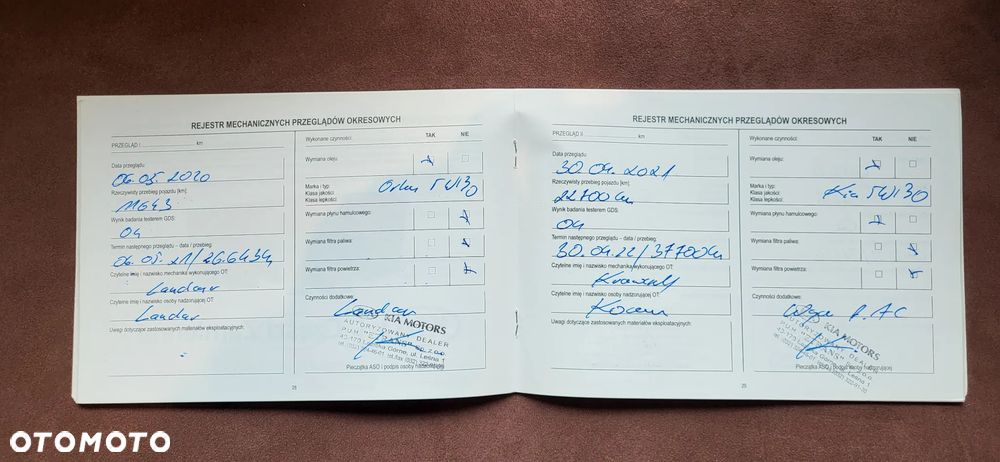 REJESTR MECHANICZNYCH PRZEGLĄDÓW OKRESOWYCH
PRZEGLĄD I km
Data przeglądu:
06.05.2020
Rzeczywisty przebieg pojazdu [km]:
11643
Wynik badania testerem GDS:
Termin następnego przeglądu – data / przebieg:
06.05.21/26.643
Czytelne imię i nazwisko mechanika wykonującego OT:
Czytelne imię i nazwisko osoby nadzorującej OT:
Uwagi dotyczące zastosowanych materiałów eksploatacyjnych:
Wykonane czynności: TAK NIE
Wymiana oleju:
Marka i typ:
Klasa jakości:
Klasa lepkości:
Orlen 5W130
Wymiana płynu hamulcowego:
Wymiana filtra paliwa:
Wymiana filtra powietrza:
Czynności dodatkowe:
KIA MOTORS
AUTORYZOWANY DEALER
Pieczątka ASO i podpis osoby nadzorującej
28
REJESTR MECHANICZNYCH PRZEGLĄDÓW OKRESOWYCH
PRZEGLĄD II km
Data przeglądu:
30.04.2021
Rzeczywisty przebieg pojazdu [km]:
22700 km
Wynik badania testerem GDS:
Termin następnego przeglądu – data / przebieg:
30.04.22/37700 km
Czytelne imię i nazwisko mechanika wykonującego OT:
Czytelne imię i nazwisko osoby nadzorującej OT:
Uwagi dotyczące zastosowanych materiałów eksploatacyjnych:
Wykonane czynności: TAK NIE
Wymiana oleju:
Marka i typ:
Klasa jakości:
Klasa lepkości:
Kia 5W130
Wymiana płynu hamulcowego:
Wymiana filtra paliwa:
Wymiana filtra powietrza:
Czynności dodatkowe:
KIA MOTORS
Pieczątka ASO i podpis osoby nadzorującej
29
OTOMOTO